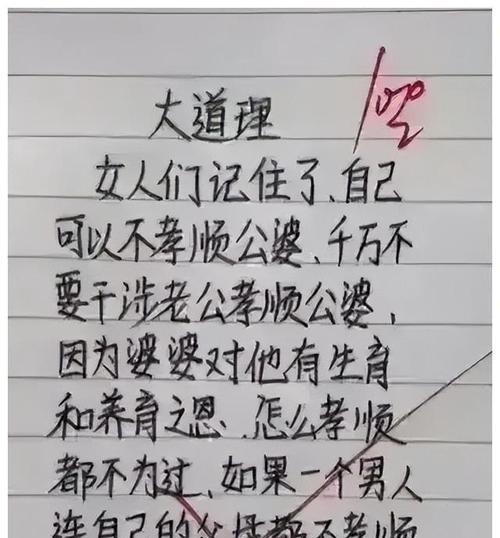 100
大道理
女人们记住了、自己
可以不孝顺公婆、千万不
要干涉老公孝顺公婆，
因为婆婆对他有生育
和养育之恩、怎么孝顺
都不为过、如果一个男人
连自己的父母都不孝顺